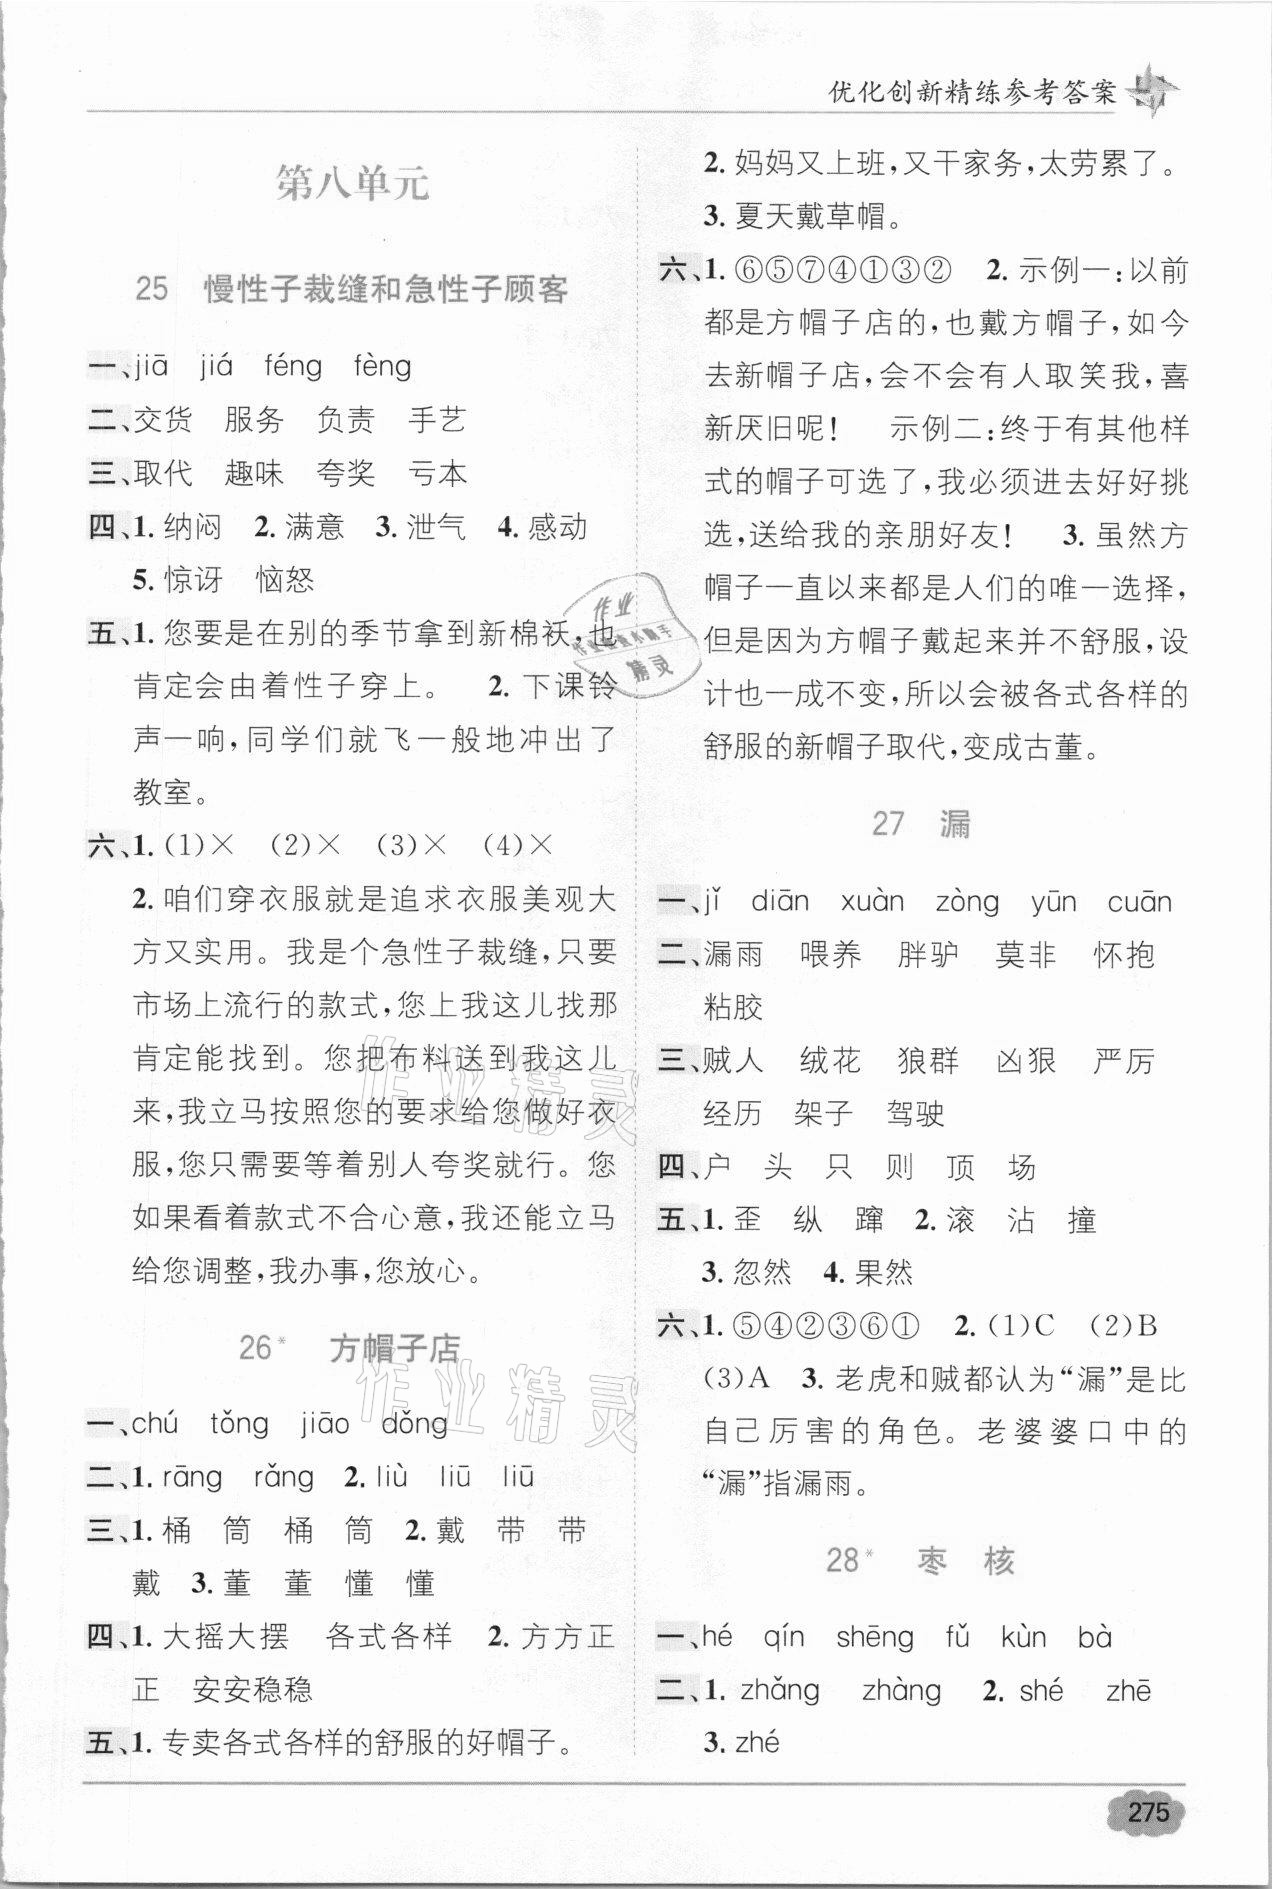 优化创新精练参考答案
第八单元
25 慢性子裁缝和急性子顾客
一、jiā jiá féng fèng
二、交货 服务 负责 手艺
三、取代 趣味 夸奖 亏本
四、1.纳闷 2.满意 3.泄气 4.感动
5.惊讶 恼怒
五、1.您要是在别的季节拿到新棉袄,也
肯定会由着性子穿上。 2.下课铃
声一响,同学们就飞一般地冲出了
教室。
六、1.(1)× (2)× (3)× (4)×
2.咱们穿衣服就是追求衣服美观大
方又实用。我是个急性子裁缝,只要
市场上流行的款式,您上我这儿找那
肯定能找到。您把布料送到我这儿
来,我立马按照您的要求给您做好衣
服,您只需要等着别人夸奖就行。您
如果看着款式不合心意,我还能立马
给您调整,我办事,您放心。
26* 方帽子店
一、chú tǒng jiāo dǒng
二、1.rāng rǎng 2.liù liū liū
三、1.桶 筒 桶 筒 2.戴 带 带
戴 3.董 董 懂 懂
四、1.大摇大摆 各式各样 2.方方正
正 安安稳稳
五、1.专卖各式各样的舒服的好帽子。
2.妈妈又上班,又干家务,太劳累了。
3.夏天戴草帽。
六、1.⑥⑤⑦④①③② 2.示例一:以前
都是方帽子店的,也戴方帽子,如今
去新帽子店,会不会有人取笑我,喜
新厌旧呢! 示例二:终于有其他样
式的帽子可选了,我必须进去好好挑
选,送给我的亲朋好友! 3.虽然方
帽子一直以来都是人们的唯一选择,
但是因为方帽子戴起来并不舒服,设
计也一成不变,所以会被各式各样的
舒服的新帽子取代,变成古董。
27 漏
一、jǐ diān xuàn zòng yūn cuān
二、漏雨 喂养 胖驴 莫非 怀抱
粘胶
三、贼人 绒花 狼群 凶狠 严厉
经历 架子 驾驶
四、户 头 只 则 顶 场
五、1.歪 纵 蹿 2.滚 沾 撞
3.忽然 4.果然
六、1.⑤④②③⑥① 2.(1)C (2)B
(3)A 3.老虎和贼都认为“漏”是比
自己厉害的角色。老婆婆口中的
“漏”指漏雨。
28* 枣 核
一、hé qín shēng fǔ kùn bà
二、1.zhǎng zhàng 2.shé zhē
3.zhé
275
作业
精灵
作业精灵
作业精灵